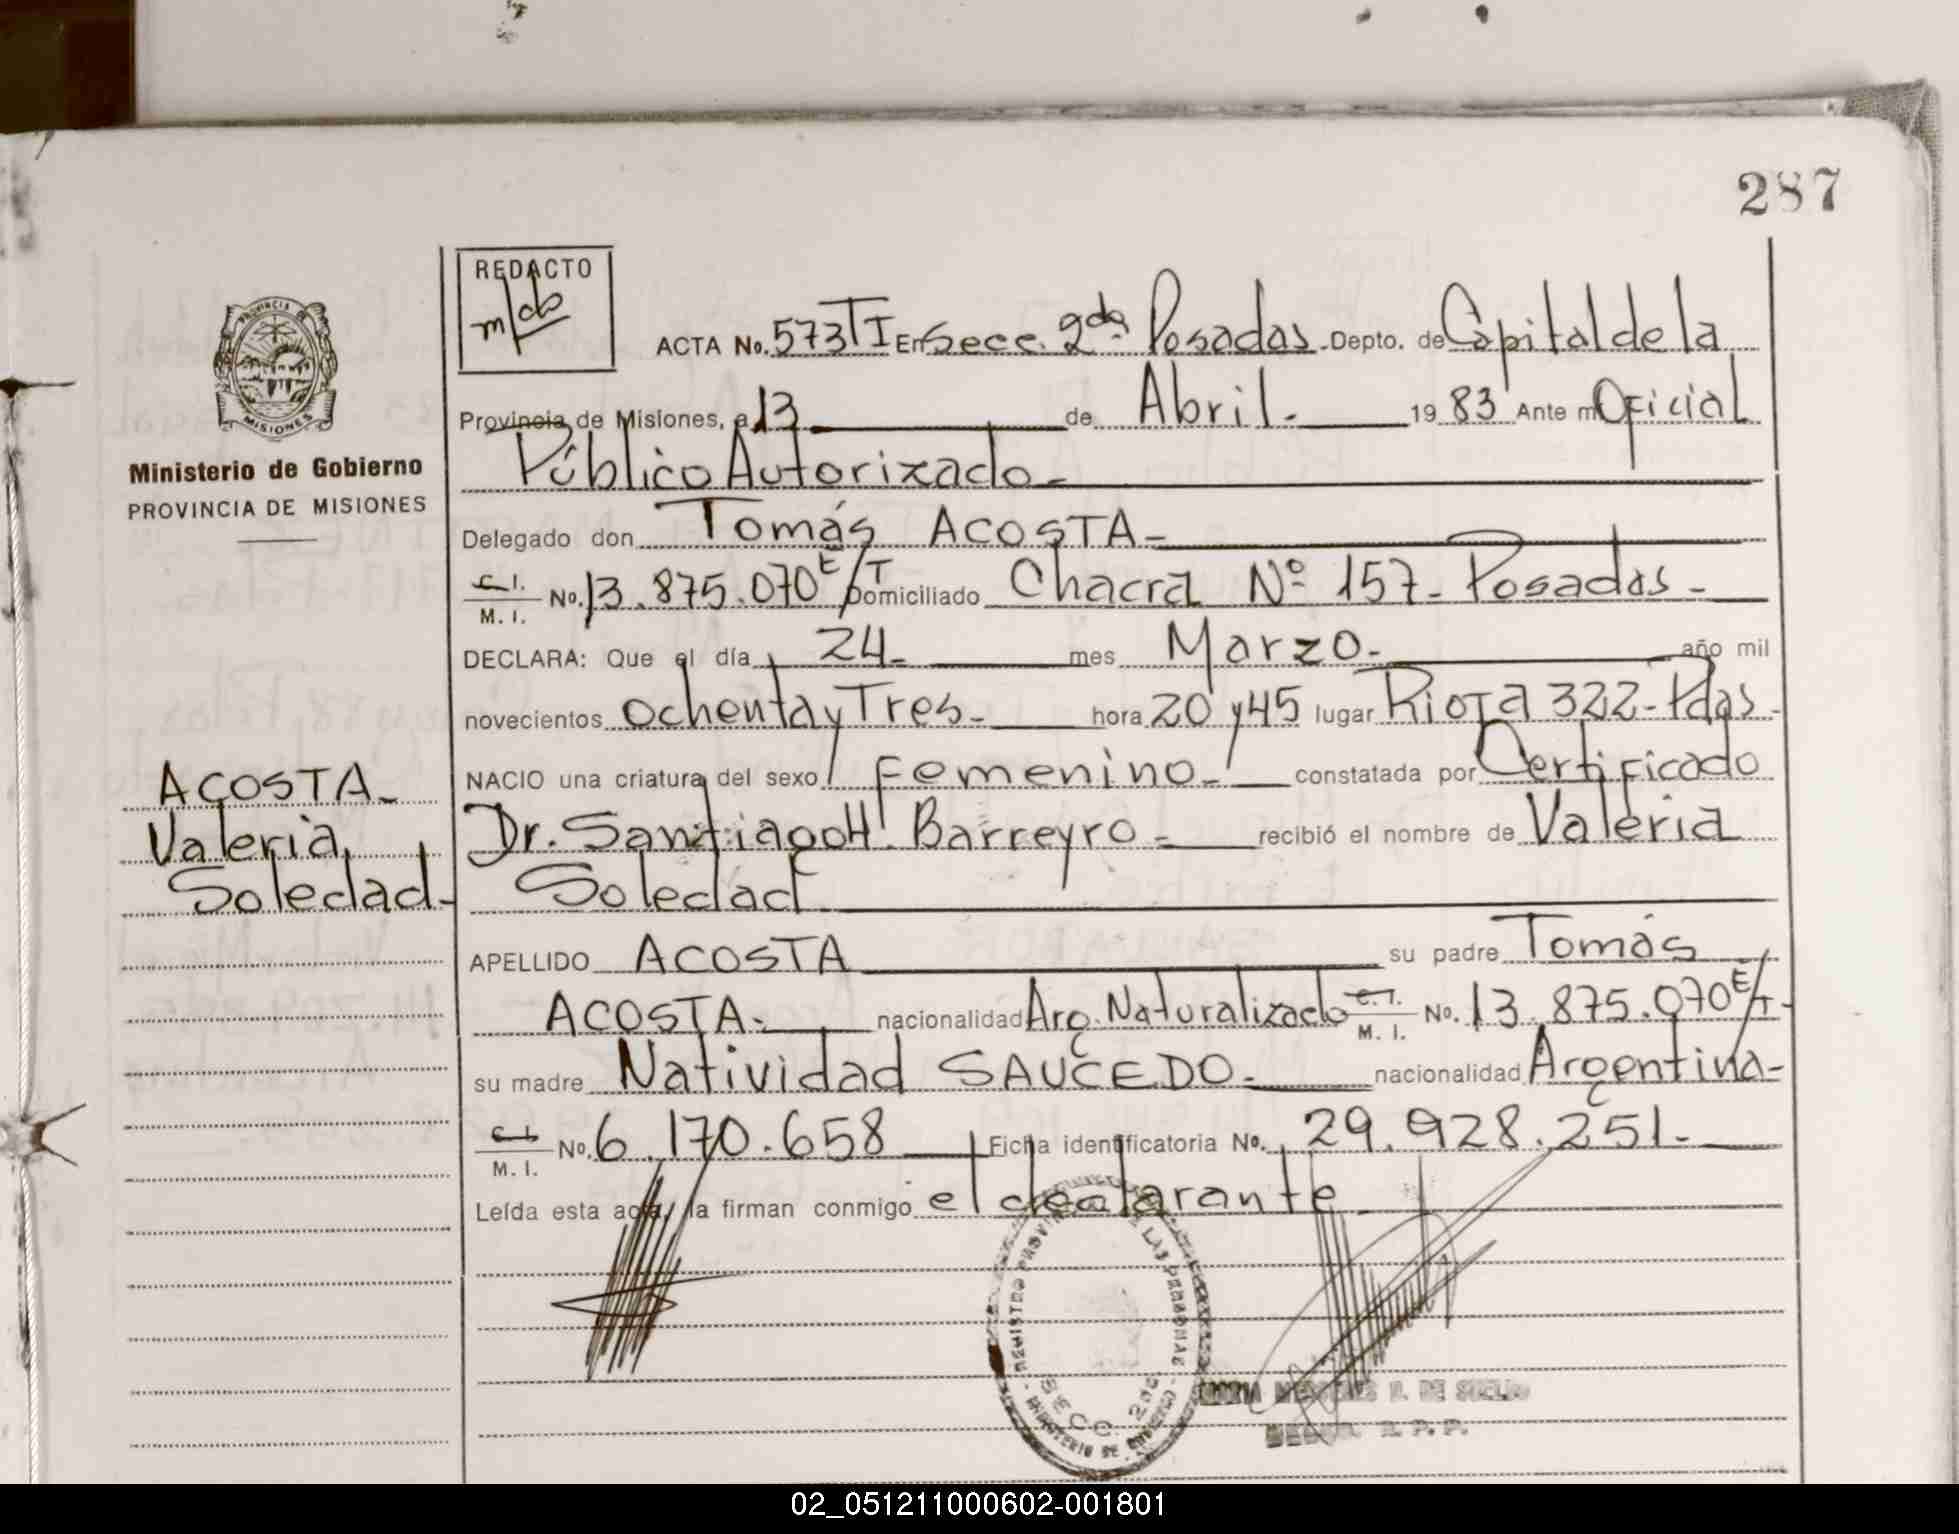 287
REDACTO
ACTA No. 573 TI En Secc. 2da Posadas. Depto. de Capital de la
Provincia de Misiones, a 13 de Abril. 1983 Ante mi Oficial
Público Autorizado
Ministerio de Gobierno
PROVINCIA DE MISIONES
Delegado don Tomás ACOSTA
C. I. / M. I. No. 13.875.070 E/T Domiciliado Chacra Nº 157 - Posadas
DECLARA: Que el día 24 mes Marzo. año mil
novecientos ochenta y Tres hora 20 y 45 lugar Rioja 322 - Pdas
NACIO una criatura del sexo femenino constatada por Certificado
Dr. Santiago H. Barreyro recibió el nombre de Valeria
Soledad
ACOSTA
Valeria
Soledad
APELLIDO ACOSTA su padre Tomás
ACOSTA nacionalidad Arg. Naturalizado C. I. / M. I. No. 13.875.070 E/T
su madre Natividad SAUCEDO nacionalidad Argentina
C. I. / M. I. No. 6.170.658 Ficha identificatoria No. 29.928.251
Leída esta acta, la firman conmigo el declarante
REGISTRO PROVINCIAL DE LAS PERSONAS
SECC. 2da
MINISTERIO DE GOBIERNO
R. P. P.
02_051211000602-001801